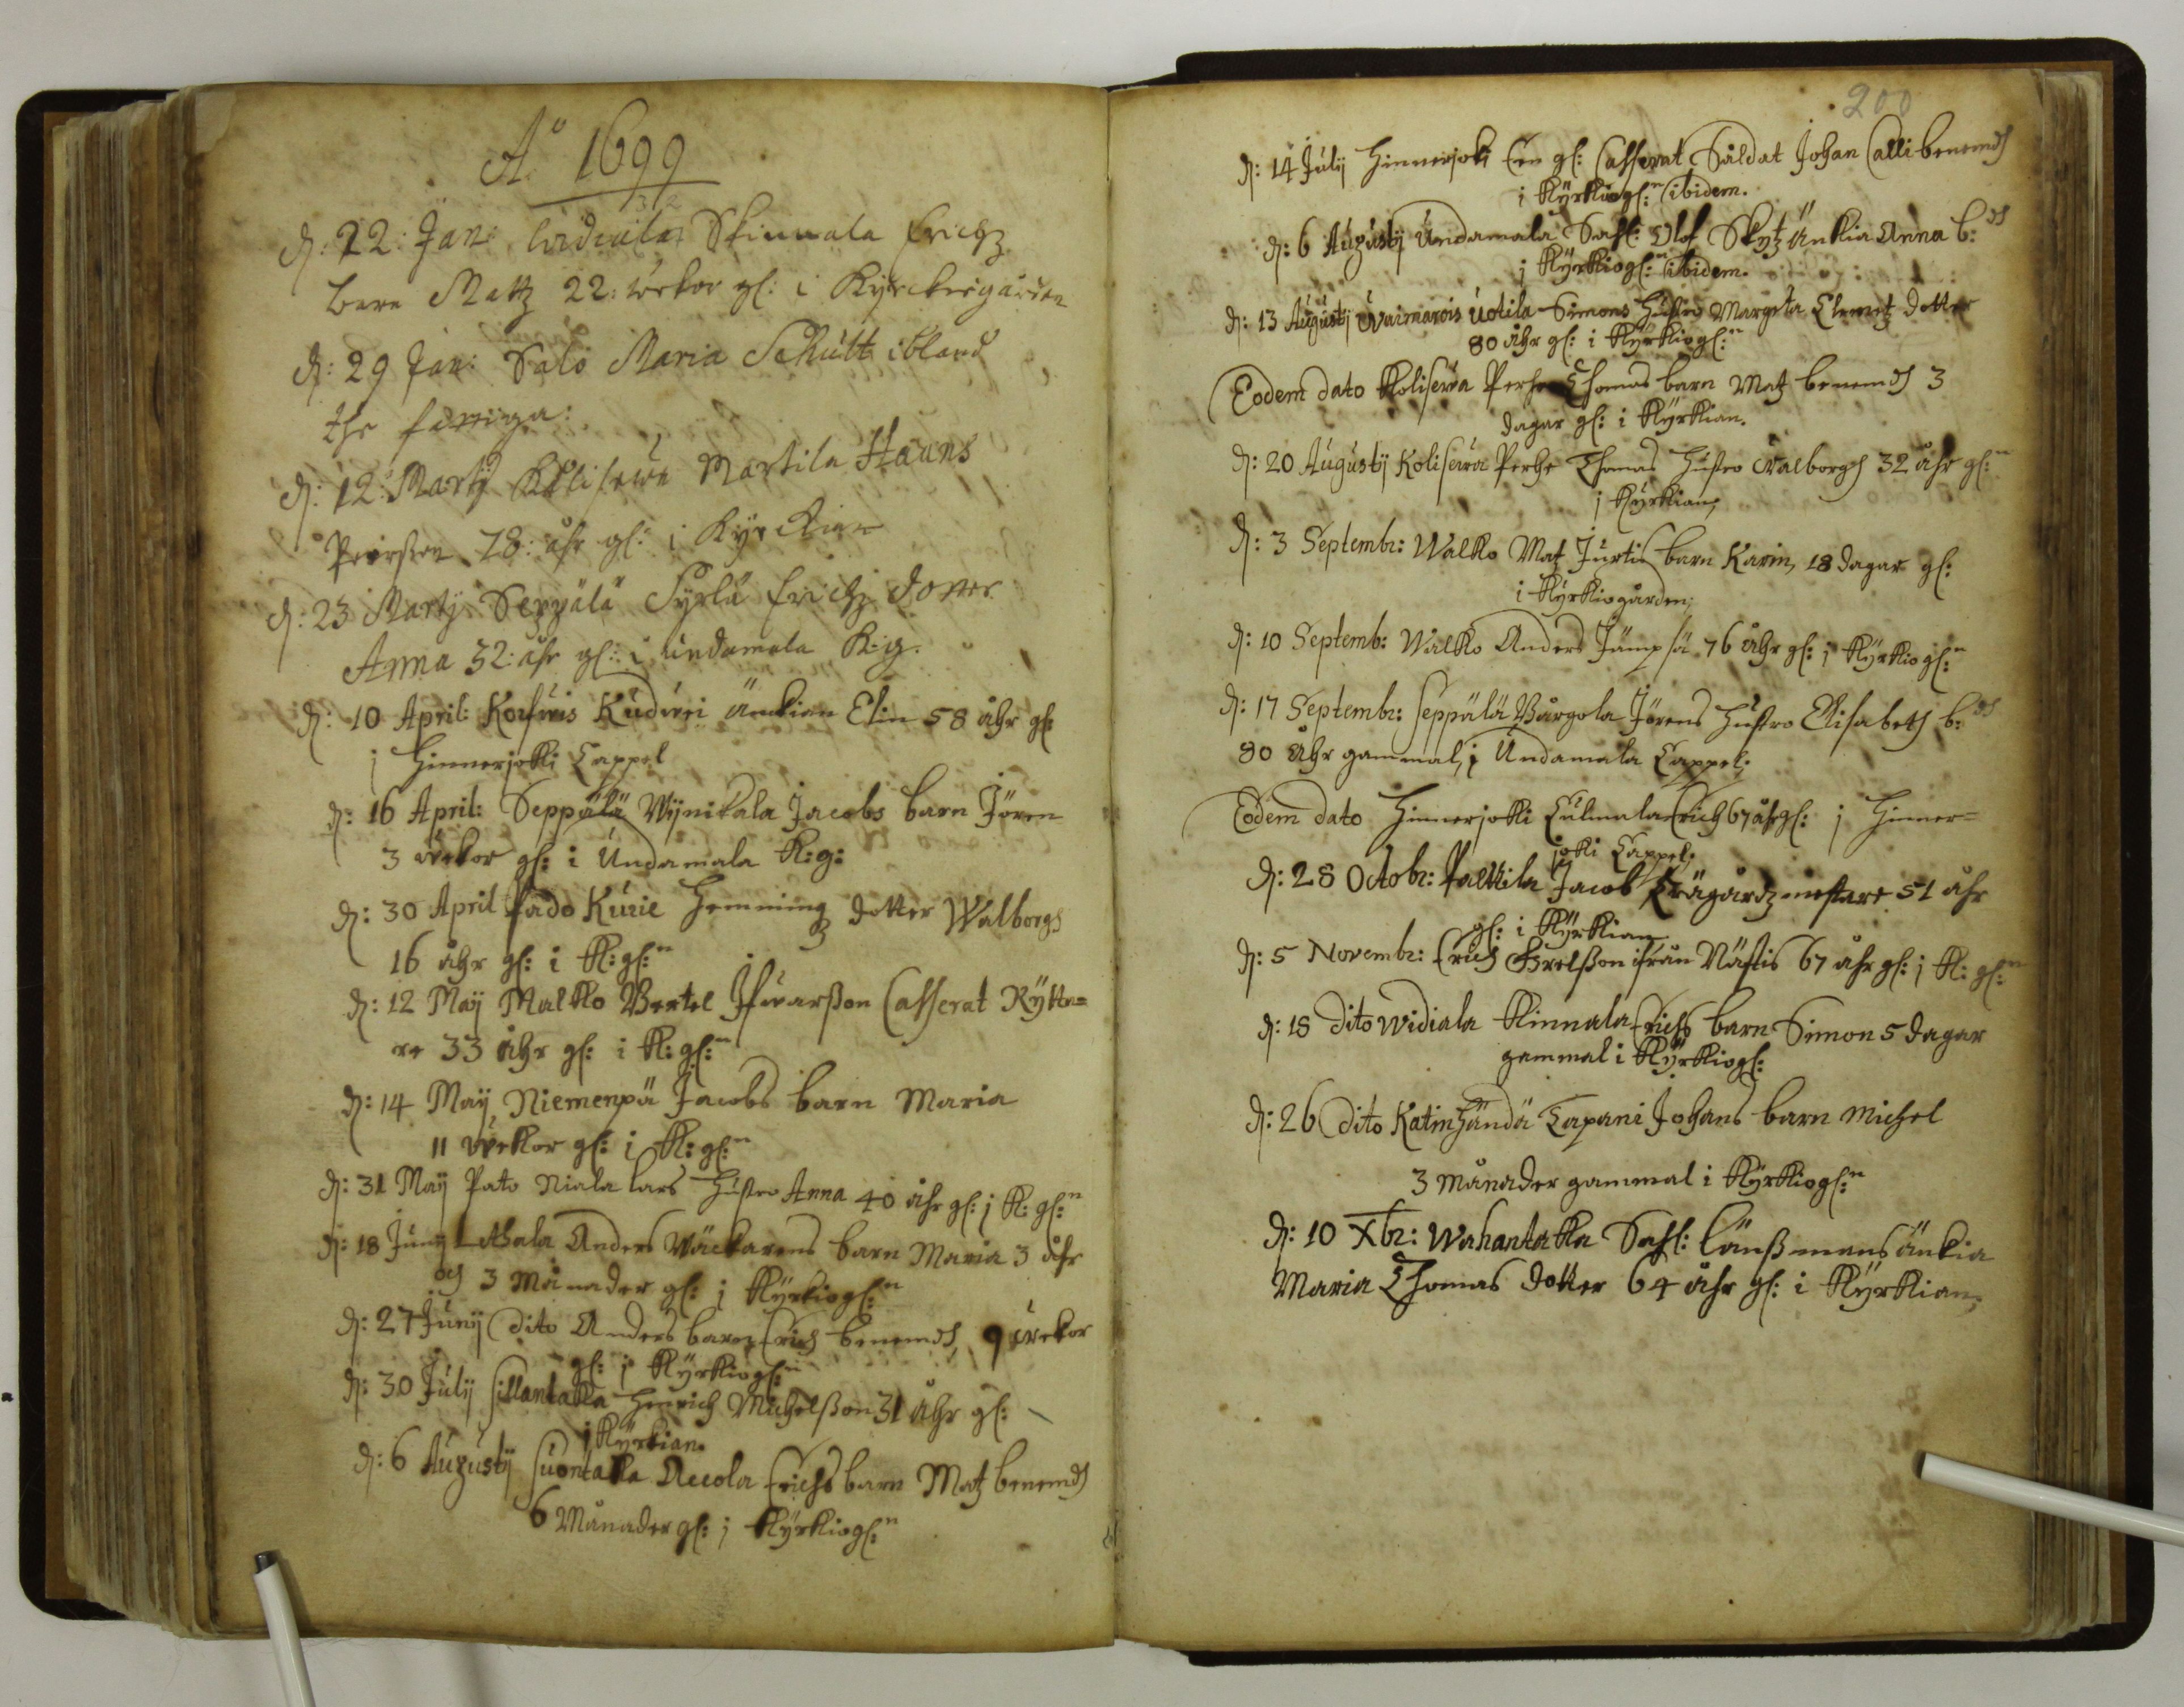 Aº 1699
d: 22: Jan: Skinnala Erichz
barn Mattz 22: wekor gl: i Kyrckiogården
d: 29 Jan: Salo Maria Schult ibland
the
d: 12: Martij Kolisewa Martila Hanns
Peersson 78: åhr gl: i Kyrckian
d: 23 Martij Seppälä Syrlä Erichz dotter
Anna 32: åhr gl: i undamala K:g.
d: 10 April: Korfwis Kudwri änckian Elin 58 åhr gl:
i Hinnerjokki Cappel
d: 16 April: Seppälä Wijnikala Jacobs barn Jören
3 wekor gl: i Undamala K:g:
d: 30 April Pado Kurie Hemmingz dotter Walborgh
16 åhr gl: i K:gl:n
d: 12 Maij Malko Bertel Ifwarsson Casserat Rytta=
re 33 åhr gl: i K:gl:n
d: 14 Maij Niemenpä Jacobs barn Maria
11 wekor gl: i K:gl:n
d: 31 Maij Pato Niala Lars hustro Anna 40 åhr gl: i K:gl:n
d: 18 Junij Anders Wäckarens barn Maria 3 åhr
och 3 Månader gl: i Kyrkiogl:n
d: 27 Junij dito Anders barn Erich benemdh, 9 wekor
gl: i Kyrkiogl:n
d: 30 Julij Sillantakka Henrich Michelsson 31 åhr gl:
i Kyrkian.
d: 6 Augustij Suontakka Accola Erichs barn Matz benemdh
6 Månader gl: i Kyrkiogl:n
200
d: 14 Julij Hinnerjoki Een gl: Casserat Såldat Johan Calli benemdh
i Kyrkiogl:n ibidem.
d: 6 Augustij Undamala Sahl: Olof Skytz änkia Anna b:dh
i Kyrkiogl:n ibidem.
d: 13 Augustij Waimarois Uotila Simons hustro Margeta Clemetz dotter
80 åhr gl: i Kyrkiogl:n
Eodem dato Kolisewa Perhe Thomas barn Matz benemdh 3
dagar gl: i Kyrkian.
d: 20 Augustij Kolisewa Perhe Thomas hustro Walborgh 32 åhr gl:n
i Kyrkian,
d: 3 Septembr: Walko Matz Jurtis barn Karin, 18 dagar gl:
i Kyrkiogården;
d: 10 Septemb: Walko Anders Jämpsä 76 åhr gl: i Kyrkiogl:n
d: 17 Septembr: Seppälä Bårgola Jörens hustro Elisabeth b:dh
80 åhr gammal, i Undamala Cappel;
Eodem dato Hinnerjokki Culmala Erich 67 åhr gl: i Hinner=
jokki Cappel;
d: 28 Octobr: Palttila Jacob Trägårdz mestare 51 åhr
gl: i Kyrkian
d: 5 Novembr: Erich ifrån Nästis 67 åhr gl: i K:gl:n
d: 18 dito Widiala Kinnala Erichs barn Simon 5 dagar
gammal i Kyrkiogl:
d: 26 dito Katinhändä Tapani Johans barn Michel
3 månader gammal i Kyrkiogl:n
d: 10 Xbr: Wahantakka Sahl: länssmans änkia
Maria Thomas dotter 64 åhr gl: i Kyrkian;